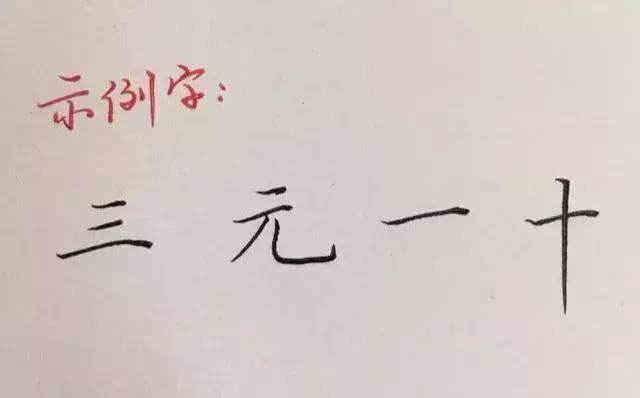 示例字：
三 元 一 十